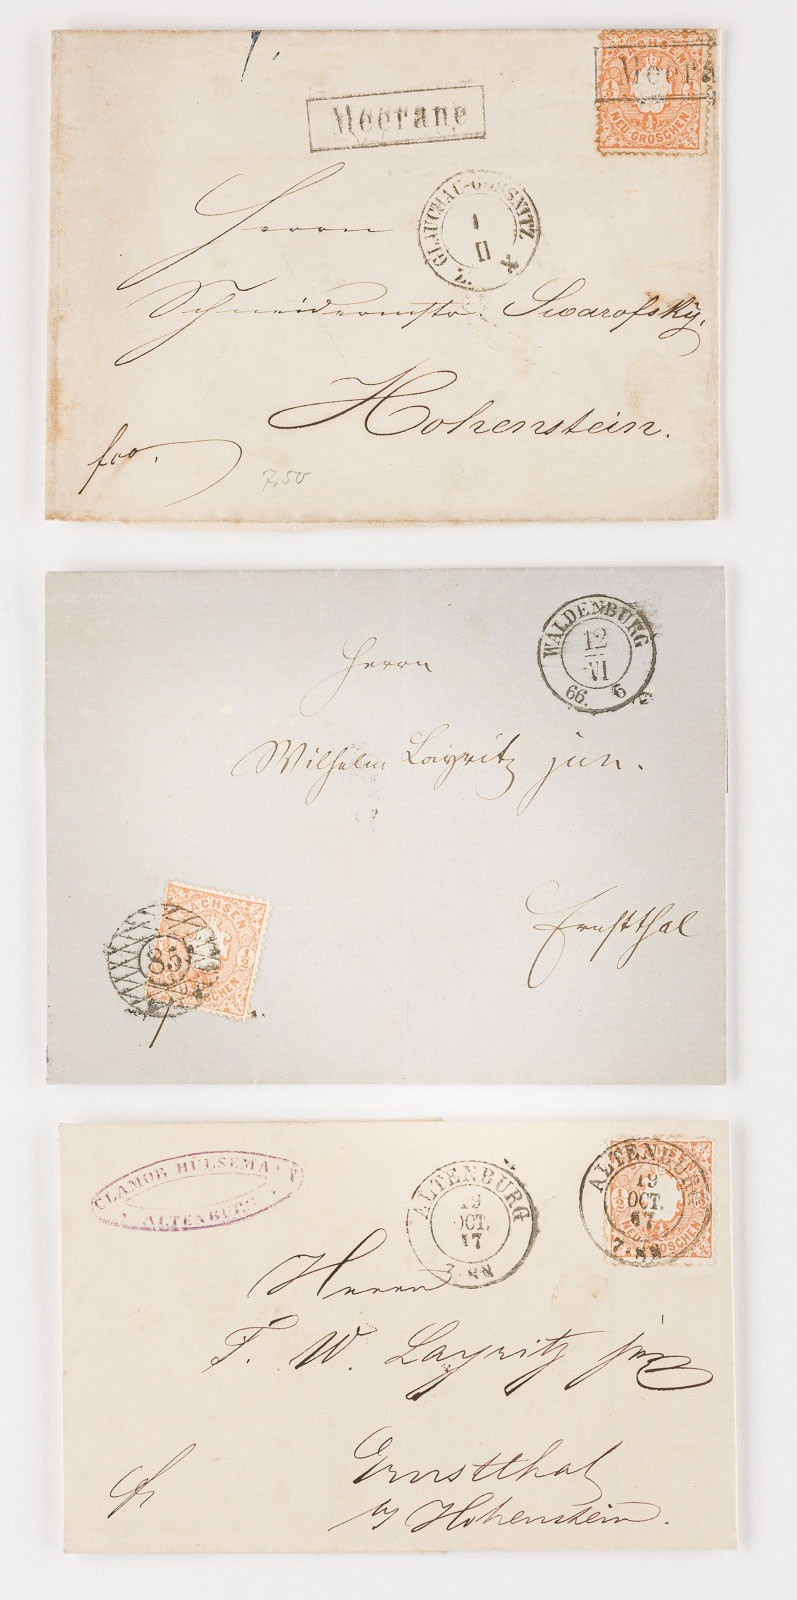 Meerane
Meera
SACHSEN
1/2 1/2
1/2
NEU-GROSCHEN
Z. GLAUCHAU-GÖSSNITZ
1
II
Herrn
Schneidermstr. Swarofsky,
Hohenstein.
fco.
7,50
WALDENBURG
12
VI
66. 6
Herrn
Wilhelm Layritz jun.
Ernstthal
SACHSEN
85
1/2
CLAMOR HÜLSEMANN
ALTENBURG
ALTENBURG
19
OCT.
17
7-8N
ALTENBURG
19
OCT.
67
7-8N
1/2
NEU-GROSCHEN
Herrn
F. W. Layritz jun.
Ernstthal
b/ Hohenstein.
fr